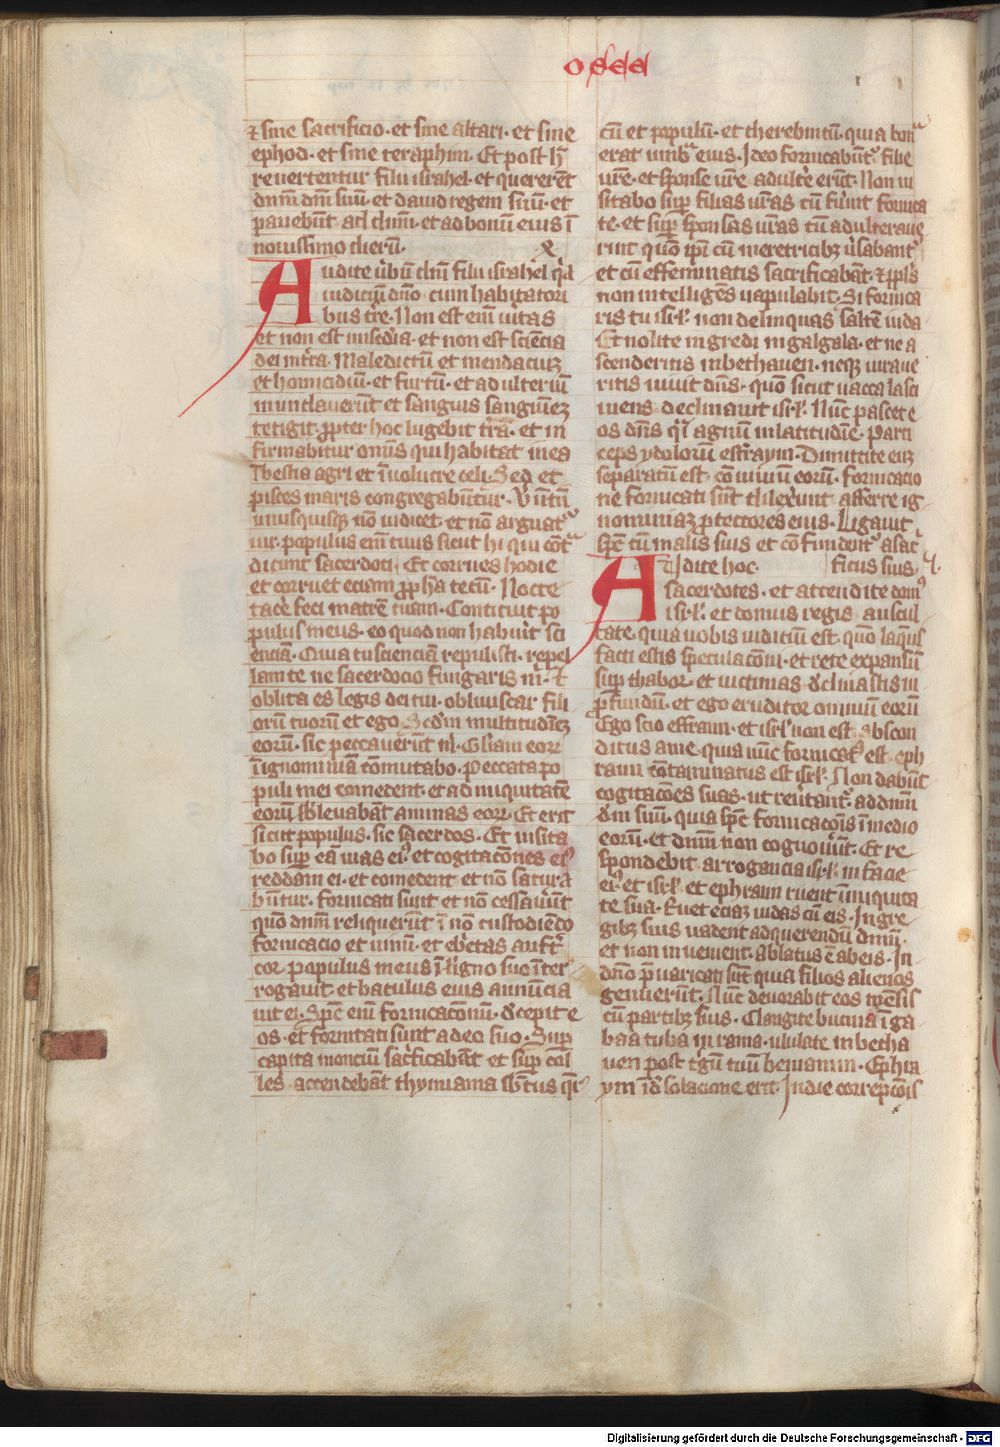 osee
⁊ sine sacrificio · et sine altari · et sine
ephod · et sine teraphim · Et post h̅
reuertentur filii israhel · et querere̅t
dn̅m dm̅ suu̅ · et dauid regem suu̅ · et
pauebu̅t ad dn̅m · et ad bonum eius ī
nouissimo dieru̅ ·
Audite ūbu̅ dn̅i filii israhel q̅a
iudiciu̅ dn̅o cum habitatori
bus tr̅e · Non est eni̅ ūitas
et non est mis̅cdia · et non est scie̅cia
dei in tr̅a · Maledictu̅ et mendaciuꝫ
et homicidiu̅ · et furtu̅ · et adulteriu̅
inundauerūt et sanguis sanguīeꝫ
tetigit · ꝓpter hoc lugebit tr̅a · et in
firmabitur om̅is qui habitat in ea
ī bestia agri et ī uolucre celi · Sed et
pisces maris congregabūtur · Uūtn̅
unusquisqꝫ no̅ iudicet · et no̅ arguat᷑
uir · populus eni̅ tuus sicut hi qui co̅t᷑
dicunt sacerdoti · Et corrues hodie
et corruet eciam ꝓph̅a tecu̅ · Nocte
tace̅ feci matre̅ tuam · Conticuit po
pulus meus · eo quod non habuit sci
encia̅ · Quia tu scienciā repulisti · repel
lam te ne sacerdocio fungaris m̅ · Et
oblita es legis dei tui · obliuiscar fili
oru̅ tuoru̅ et ego Scdm multitudīeꝫ
eoru̅ · sic peccauerūt m̅ · Gl̅iam eoꝝ
ī ignominiā co̅mutabo · Peccata po
puli mei comedent · et ad iniquitate̅
eoru̅ sbleuabāt animas eoꝝ · Et erit
sicut populus · sic sacerdos · Et uisita
bo sup̅ eā uias eiꝰ et cogitacōnes eiꝰ
reddam ei · et comedent et no̅ satura
būtur · fornicati sunt et no̅ cessauūt
quo̅ dn̅m reliquerūt ī no̅ custodiēdo
fornicacio et uinu̅ · et eb̅etas auft᷑
cor populus meus ī ligno suo īter
rogauit · et baculus eius annūcia
uit ei · Spc̅ eni̅ fornicacōnu̅ · dcepit e
os · et fornicati sunt a deo suo · Sup̅
capita monciu̅ sacrificabāt et sup̅ col
les accendebāt thymiama sbtus q̅r
cu̅ et populu̅ · et therebintu̅ · quia bon᷑
erat umb᷑ eius · Ideo fornicabūt᷑ filie
ur̅e · et sponse ur̅e adult̅e erūt · Non ui
sitabo sup̅ filias ur̅as cu̅ fuīnt fornica
te · et sup̅ sponsas ur̅as cu̅ adulteraue
rint quo̅ ipi̅ cu̅ meretricibꝫ ūsabant᷑
et cu̅ effeminatis sacrificabāt · ⁊ ppl̅s
non intelligēs uapulabit · Si fornica
ris tu isr̅l · non delinquas saltē iuda
Et nolite ingredi in galgala · et ne a
scenderitis in bethauen · neqꝫ iuraue
ritis uiuit dn̅s · quo̅ sicut uacca lasci
uiens declinauit isr̅l · Nūc pascet e
os dn̅s q̅i agnu̅ in latitudīe · Parti
ceps ydoloru̅ effraym · Dimittite euꝫ
separatu̅ est · co̅uiuiu̅ eoru̅ · fornicacio
ne fornicati sūt dilexūnt afferre ig
nominiaꝫ protectores eius · Ligauit
spc̅ eu̅ in alis suis et co̅fundent᷑ a sac᷑
ficiis suis ·
Audite hoc ·
sacerdotes · et attendite domꝰ
isr̅l · et domus regis auscul
tate · quia uobis iudiciu̅ est · quo̅ laqus
facti estis speculacōni · et rete expansu̅
sup̅ thabor · et uictimas dclinastis in
ꝓfundu̅ · et ego eruditor omniu̅ eoru̅
Ego scio effraim · et isr̅l non est abscon
ditus a me · quia nūc fornicatꝰ est eph
raim cōtaminatus est isr̅l · Non dabūt
cogitacōes suas · ut reūtant᷑ ad dn̅m
dm̅ suu̅ · quia spc̅ fornicacōis ī medio
eoru̅ · et dn̅m non cognouūnt · Et re
spondebit arrogancia isr̅l · in facie
eiꝰ et isr̅l · et ephraim ruent ī iniquita
te sua · Ruet eciaꝫ iudas cu̅ eis · In gre
gibꝫ suis uadent ad querendu̅ dn̅m
et non inuenient · Ablatus ē ab eis · In
dn̅o p̅uaricati sūt quia filios alienos
genuerūt · Nūc deuorabit eos mēsis
cu̅ partibꝫ suis · Clangite bucina ī ga
baa tuba in rama · ululate in betha
uen post t̅gu̅ tuu̅ beniamin · Ephra
ym ī dsolacione erit · In die correpcōis
Digitalisierung gefördert durch die Deutsche Forschungsgemeinschaft - DFG